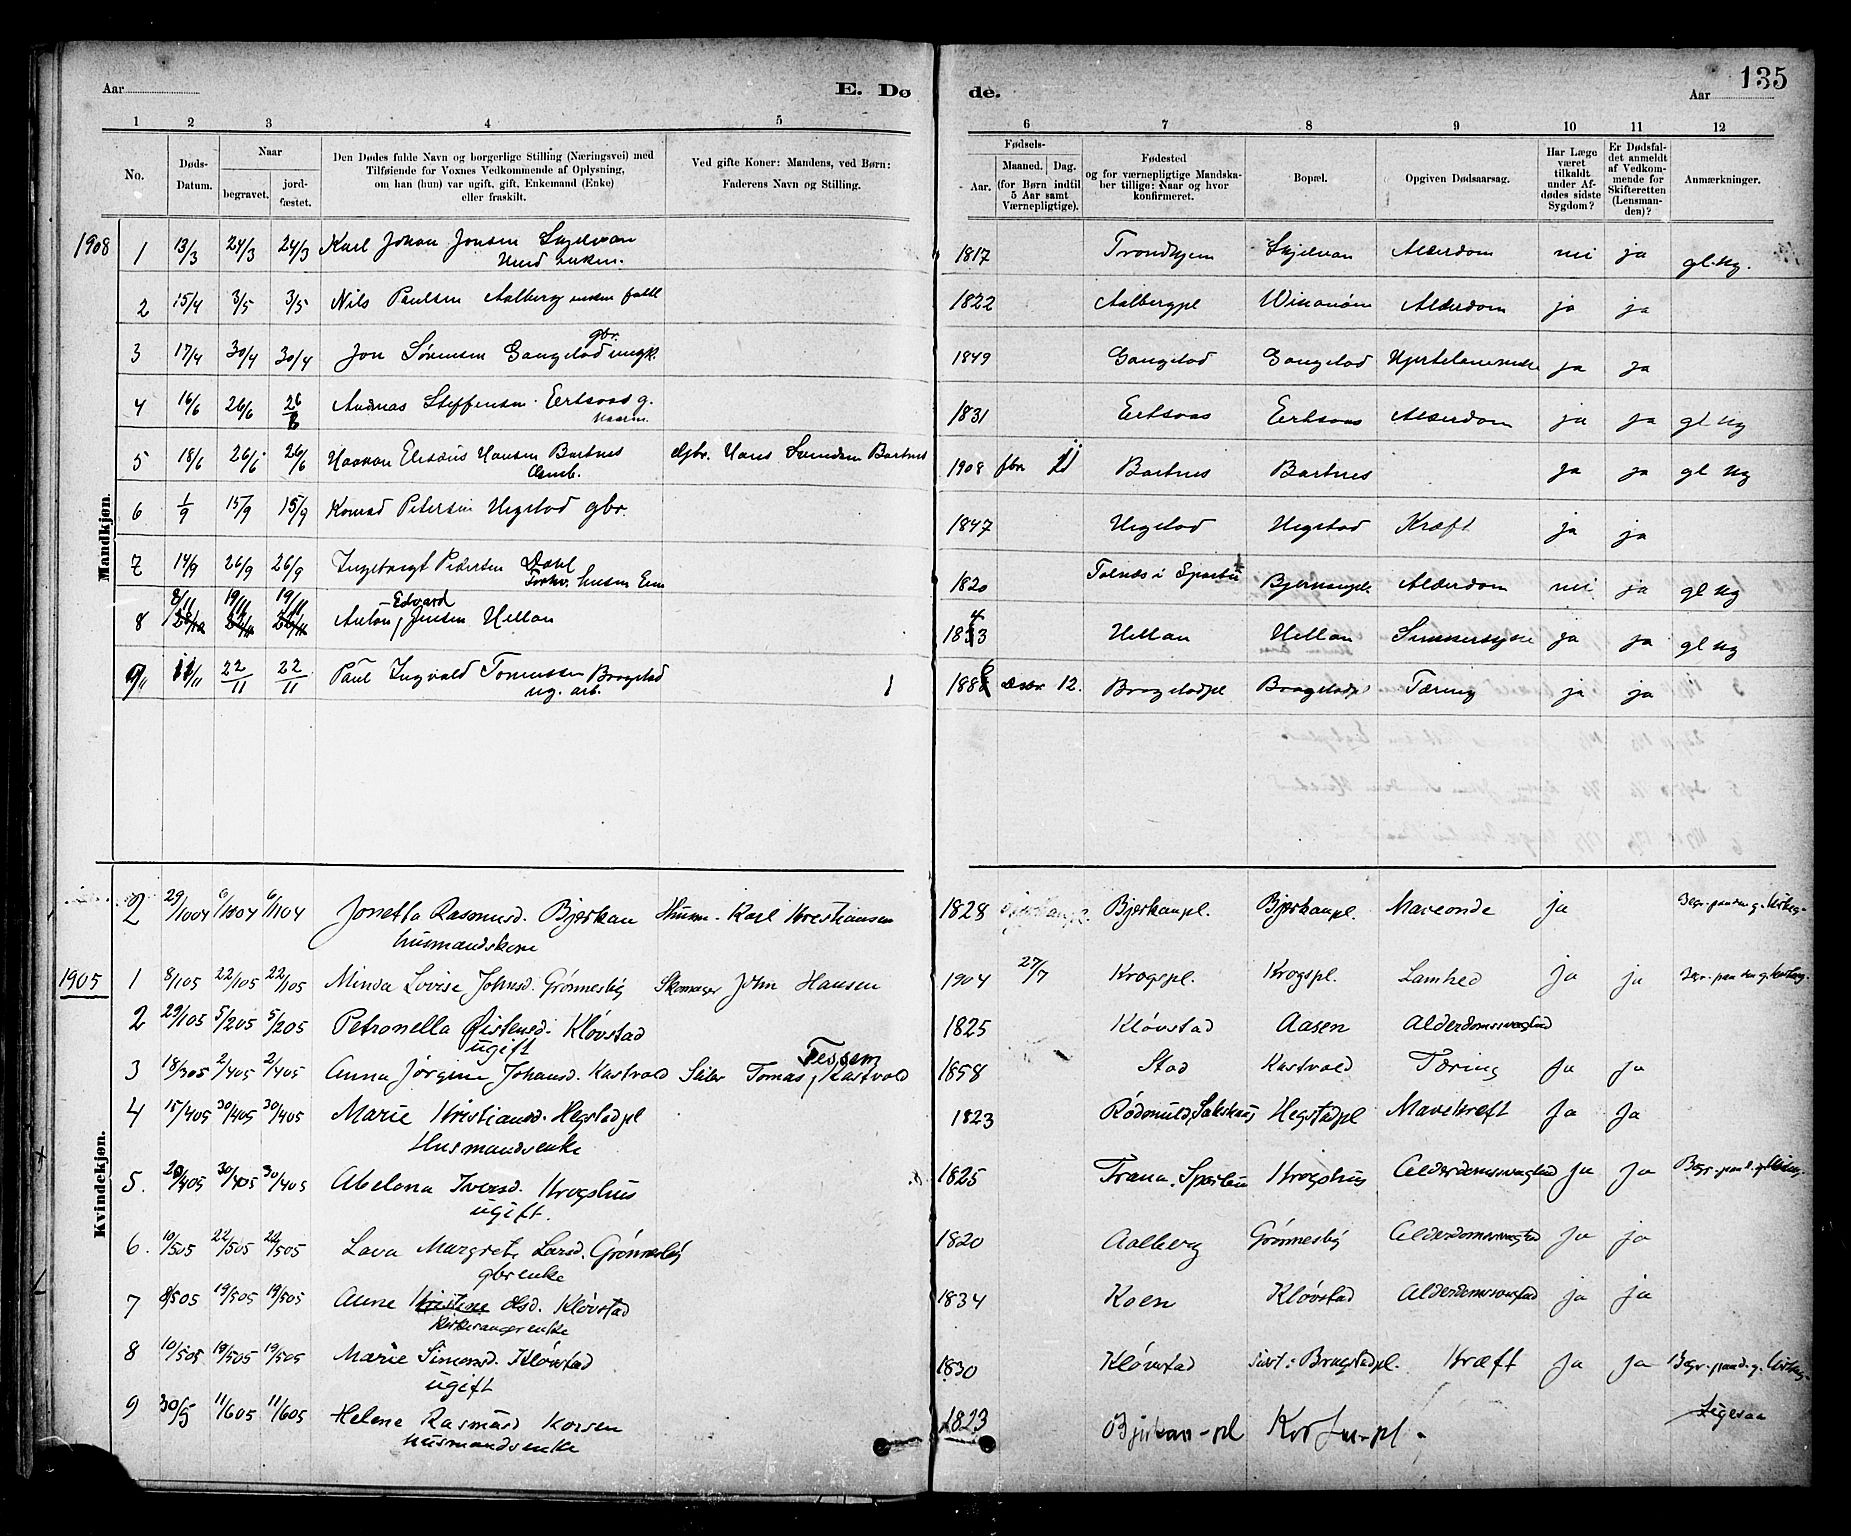 Aar
E. Dø de.
Aar
135
1 2 3 4 5 6 7 8 9 10 11 12
No. Døds-Datum. Naar begravet. jord-fæstet. Den Dødes fulde Navn og borgerlige Stilling (Næringsvei) med Tilføiende for Voxnes Vedkommende af Oplysning, om han (hun) var ugift, gift, Enkemand (Enke) eller fraskilt. Ved gifte Koner: Mandens, ved Børn: Faderens Navn og Stilling. Fødsels- Aar. Maaned. Dag. (for Børn indtil 5 Aar samt Værnepligtige). Fødested og for værnepligtige Mandskaber tillige: Naar og hvor konfirmeret. Bopæl. Opgiven Dødsaarsag. Har Læge været tilkaldt under Afdødes sidste Sygdom? Er Dødsfaldet anmeldt af Vedkommende for Skifteretten (Lensmanden)? Anmærkninger.
Mandkjøn.
1908 1 13/3 24/3 24/3 Karl Johan Jonsen Skjelvan 1817 Trondhjem Skjelvan Alderdom nei ja gl. Kg.
2 15/4 3/5 3/5 Nils Paulsen Aalberg 1822 Aalbergpl Alderdom ja ja
3 17/4 30/4 30/4 Jon Sørensen Gangstad gbr. ungk. 1849 Gangstad Gangstad ja ja
4 16/6 26/6 26/6 Andreas Steffensen Eertsaas g. 1831 Eertsaas Eertsaas Alderdom ja ja gl Kg
5 18/6 26/6 26/6 Haakon Elisæus Hansen Bartnes Gbr. Hans Bartnes 1908 fbr 11 Bartnes Bartnes ja ja gl Kg
6 1/9 15/9 15/9 Konrad Petersen Hegstad gbr. 1847 Hegstad Hegstad Kræft ja ja
7 14/9 26/9 26/9 Ingebrigt Pedersen Dahl 1820 Tolnæs i Sparbu Bjerkanpl. Alderdom nei ja gl Kg
8 8/11 19/11 19/11 Anton, Edvard Jensen Hellan 1843 Hellan Hellan Sukkersyge ja ja gl Kg
9 11/11 22/11 22/11 Paul Ingvald Tomassen Bragstad
ug. arb. 1 1886 Decbr 12. Bragstadpl Bragstadpl Tæring ja ja
Kvindekjøn.
2 29/1004 6/1104 6/1104 Jonetta Rasmusd. Bjerkan Husm. Karl Kristiansen 1828 Bjerkanpl. Bjerkanpl. Maveonde ja Begr. paa den g. Kirkeg.
husmandskone
1905 1 8/105 22/105 22/105 Minda Lovise Johnsd. Grønnesby Skomager John Hansen 1904 27/7 Krogspl. Krogspl. Lamhed ja ja Begr. paa den g. Kirkeg.
2 29/105 5/205 5/205 Petronella Øistensd. Kløvstad 1825 Kløvstad Aasen Alderdomssvaghed
ugift
3 18/305 2/405 2/405 Anna Jørgine Johansd. Kastvold Tomas, Tessem Kastvold 1858 Stod Kastvold Tæring Ja Ja
4 15/405 30/405 30/405 Marie Kristiansd. Hegstadpl 1823 Hegstadpl Mavekræft Ja Ja
Husmandsenke
5. 20/405 30/405 30/405 Abelona Iversd. Krogshus 1825 Trana, Sparbu Krogshus Alderdomssvaghed Ja Ja Begr. paa d. g. Kirkeg.
ugift.
6. 10/505 22/505 22/505 Lava Margrete Larsd. Grønnesby 1820 Aalberg Grønnesby Alderdomssvaghed Ja ja
gbrenke
7 8/505 19/505 19/505 Anne Kristine Olsd. Kløvstad 1834 Koen Kløvstad Alderdomssvaghed ja ja
Kirkesangerenke
8 10/505 19/505 19/505 Marie Simonsd. Kløvstad 1830 Kløvstad sidst: Bragstadpl. Kræft Ja Ja Begr. paa d. g. Kirkeg.
ugift
9 30/5 11/605 11/605 Helene Rasmusd Korsen 1823 Bjerkan-pl Ligesaa
husmandsenke